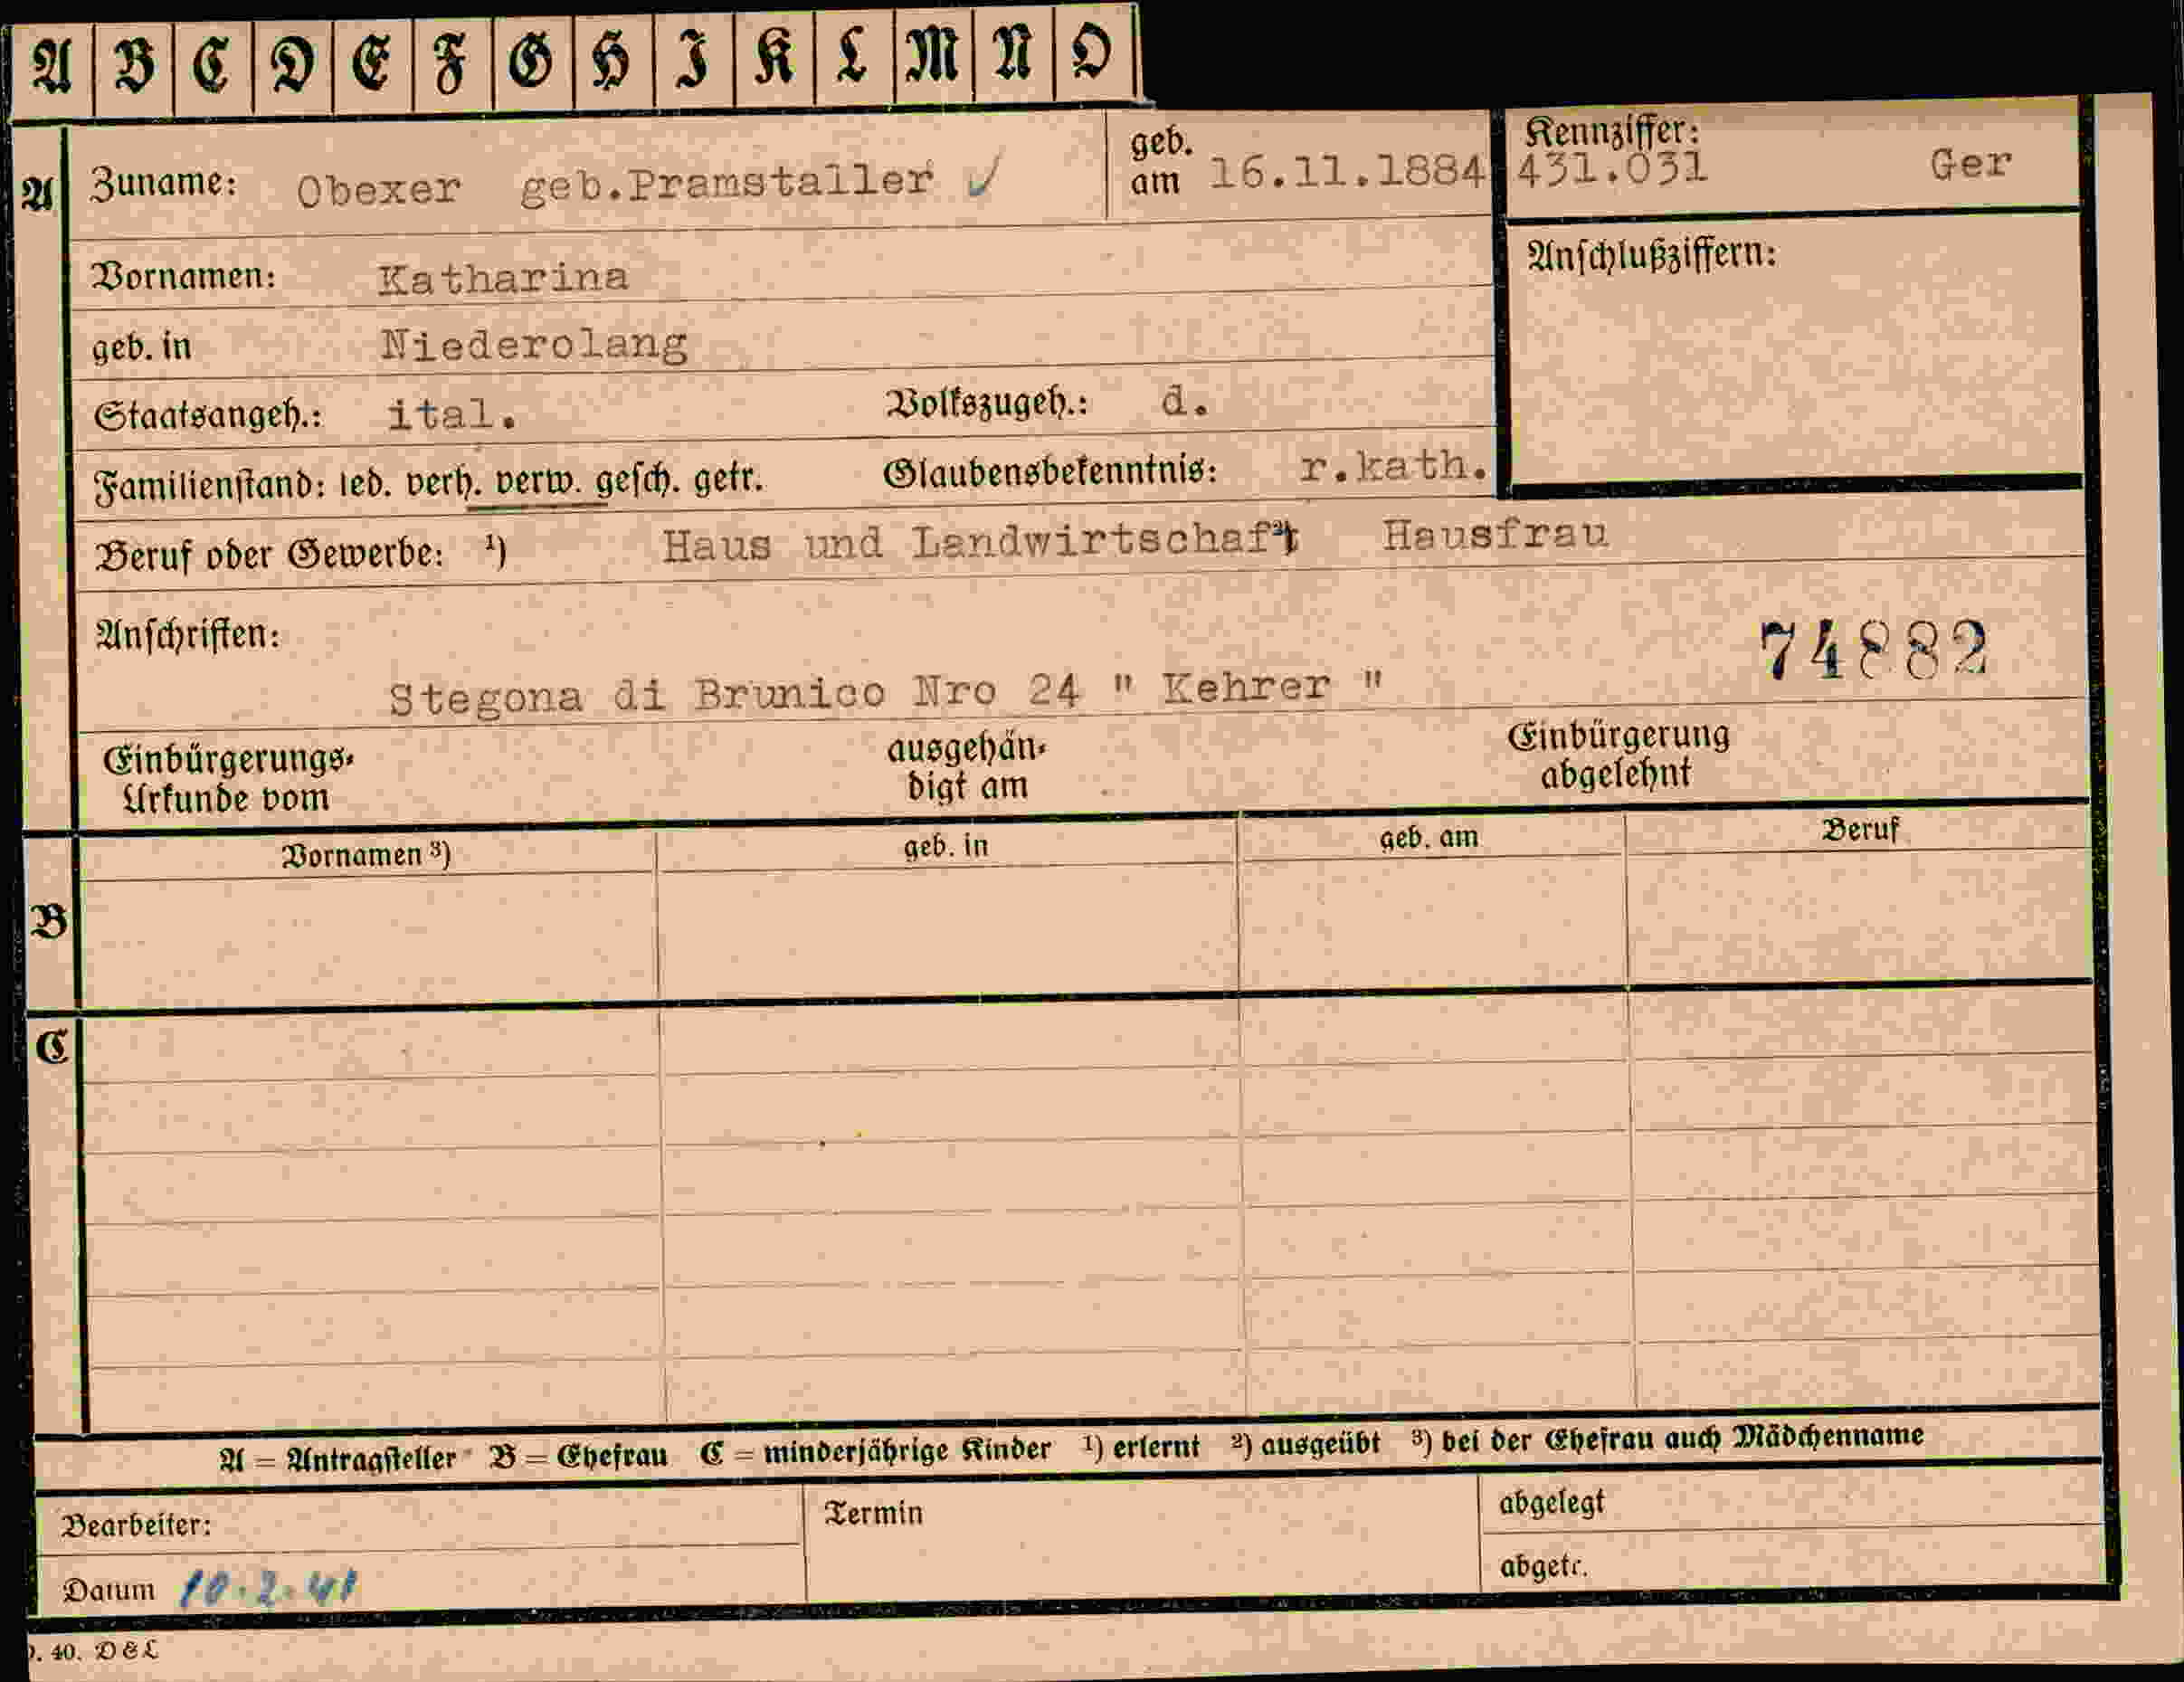 A B C D E F G H I K L M N O
A Zuname: Obexer geb.Pramstaller ✓ geb. am 16.11.1884 Kennziffer: 431.031 Ger
Vornamen: Katharina Anschlußziffern:
geb. in Niederolang
Staatsangeh.: ital. Volkszugeh.: d.
Familienstand: led. verh. verw. gesch. getr. Glaubensbekenntnis: r.kath.
Beruf oder Gewerbe: ¹) Haus und Landwirtschaft ²) Hausfrau
Anschriften: 74882
Stegona di Brunico Nro 24 " Kehrer "
Einbürgerungs- ausgehän- Einbürgerung
Urkunde vom digt am abgelehnt
Vornamen ³) geb. in geb. am Beruf
B
C
A = Antragsteller B = Ehefrau C = minderjährige Kinder ¹) erlernt ²) ausgeübt ³) bei der Ehefrau auch Mädchenname
Bearbeiter: Termin abgelegt
Datum 10.2.41 abgetr.
. 40. D & L